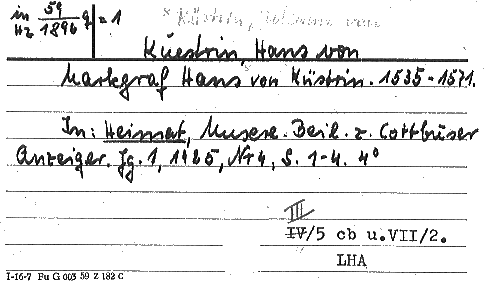 in 59 q = 1
Hz 1896
* Küstrin, Johann von
Kuestrin, Hans von
Markgraf Hans von Küstrin. 1535-1571.
In: Heimat, Unsere. Beil. z. Cottbuser
Anzeiger. Jg. 1, 1925, Nr 4, S. 1-4. 4°
III
IV/5 cb u.VII/2.
LHA
I-16-7 Fu G 003 59 Z 182 C